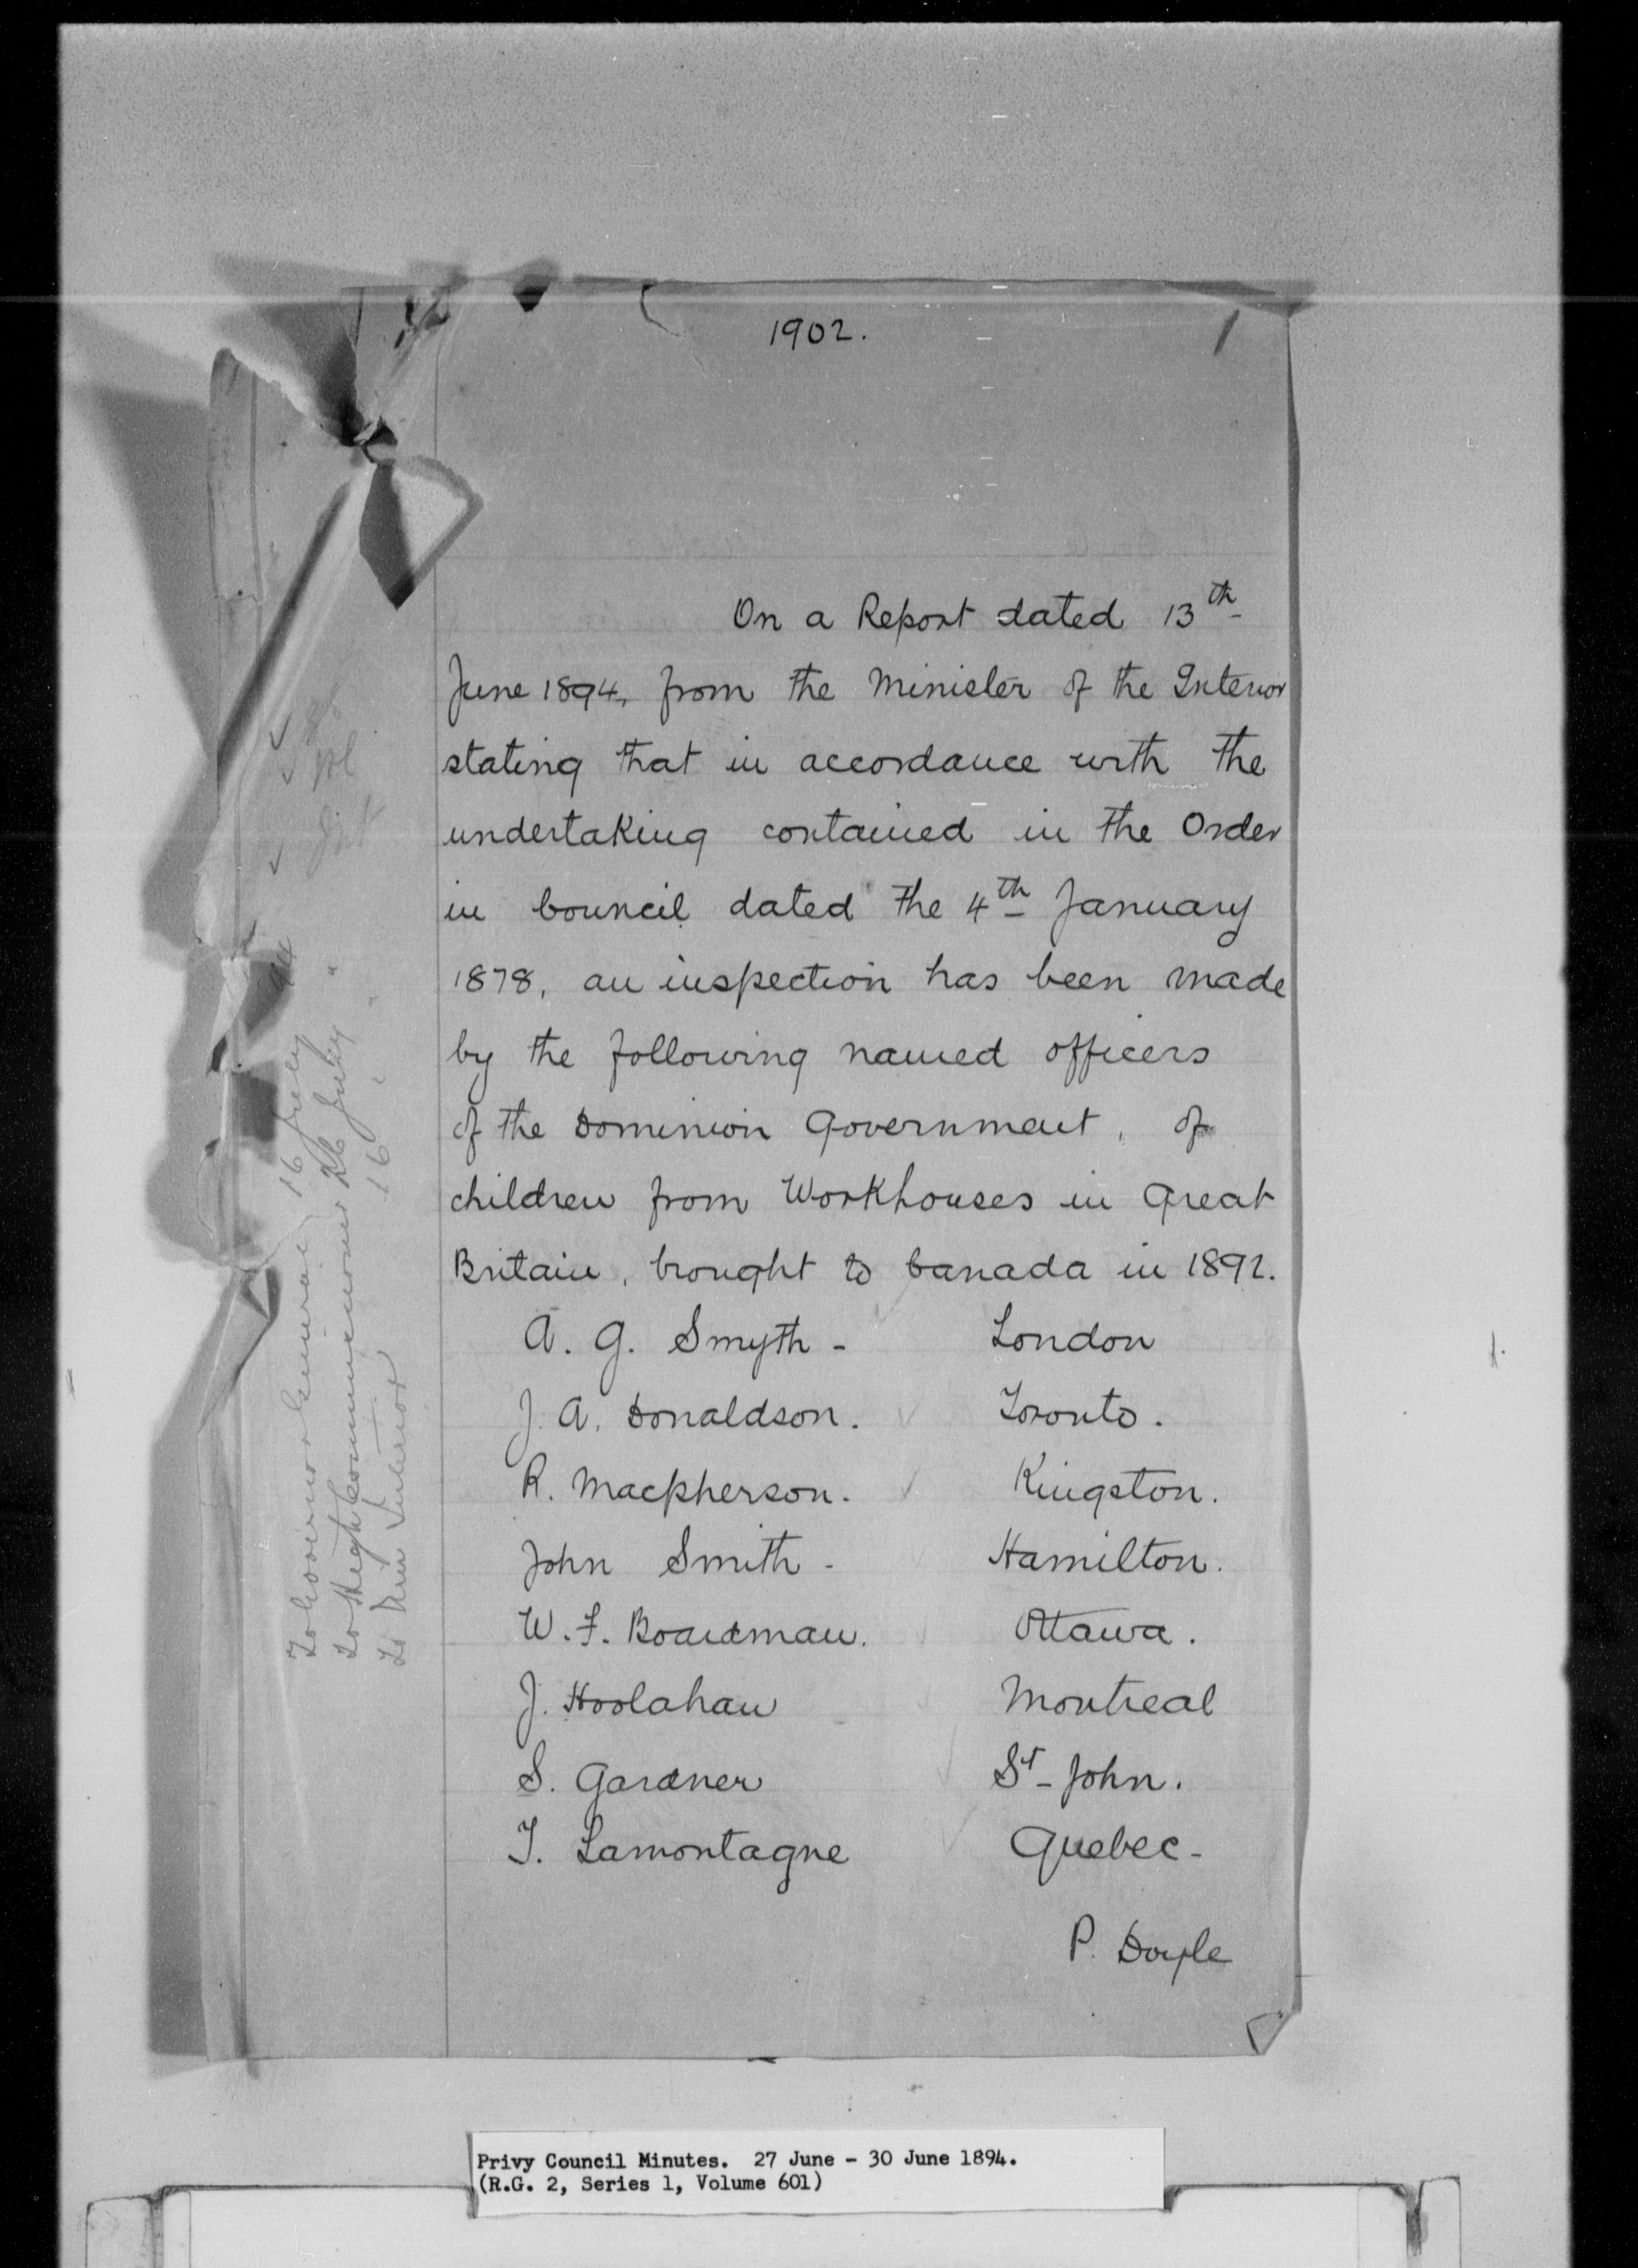 1902.
On a Report dated 13th
June 1894, from the Minister of the Interior
stating that in accordance with the
undertaking contained in the Order
in Council dated the 4th January
1878, an inspection has been made
by the following named officers
of the Dominion Government, of
children from Workhouses in Great
Britain, brought to Canada in 1892.
A. G. Smyth - London
J. A. Donaldson. Toronto.
R. Macpherson. Kingston.
John Smith - Hamilton.
W. F. Boardman. Ottawa.
J. Hoolahan Montreal
S. Gardner St- John.
T. Lamontagne Quebec-
P. Doyle
To Governor General 16 July 94
To High Commissioner 26 July "
To Min Interior 16 " "
Privy Council Minutes. 27 June - 30 June 1894.
(R.G. 2, Series 1, Volume 601)